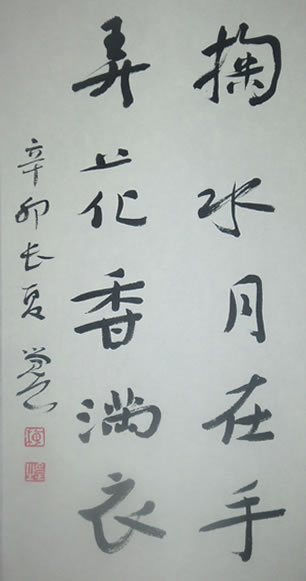 掬水月在手
弄花香满衣
辛卯长夏